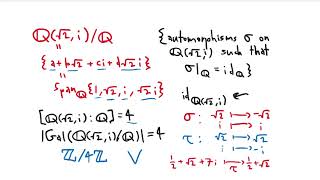 ℚ(√2, i)/ℚ
"
{a+b√2 + ci + d√2 i}
"
Span_ℚ {1, √2, i, √2 i}
[ℚ(√2, i): ℚ] = 4
|Gal(ℚ(√2, i)/ℚ)| = 4
ℤ/4ℤ V
{automorphisms σ on
ℚ(√2, i) such that
σ|_ℚ = id_ℚ}
id_ℚ(√2, i) ←
σ: √2 ↦ -√2
i ↦ i
τ: √2 ↦ √2
i ↦ -i